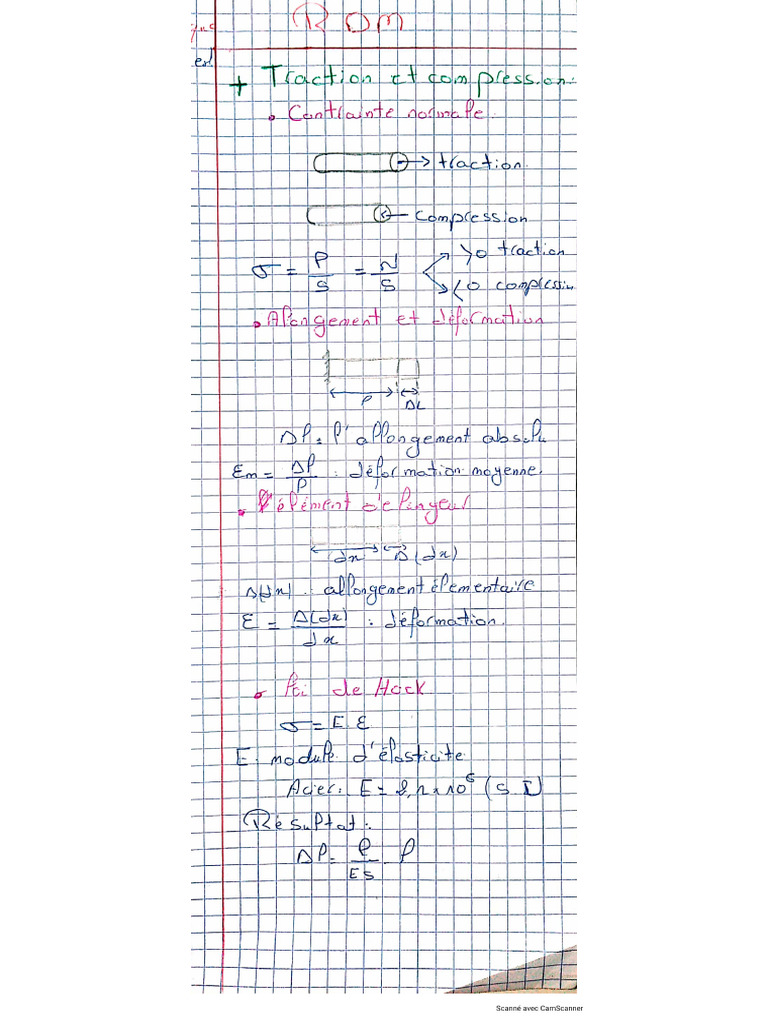 RDM
+ Traction et compression.
• Contrainte normale.
→ traction.
← compression
σ = P/S = N/S
>0 traction
<0 compressin
• Alongement et déformation
l
ΔL
Δl = l'allongement absolu
Em = Δl/l : déformation moyenne.
• l'élément de longeur
dx Δ(dx)
Δ(dx) : allongement élementaire
ε = Δ(dx)/dx : déformation.
• Loi de Hock
σ = E ε
E. module d'élasticite
Acier:
(S.I)
Résultat:
Δl = P/ES l
Scanné avec CamScanner